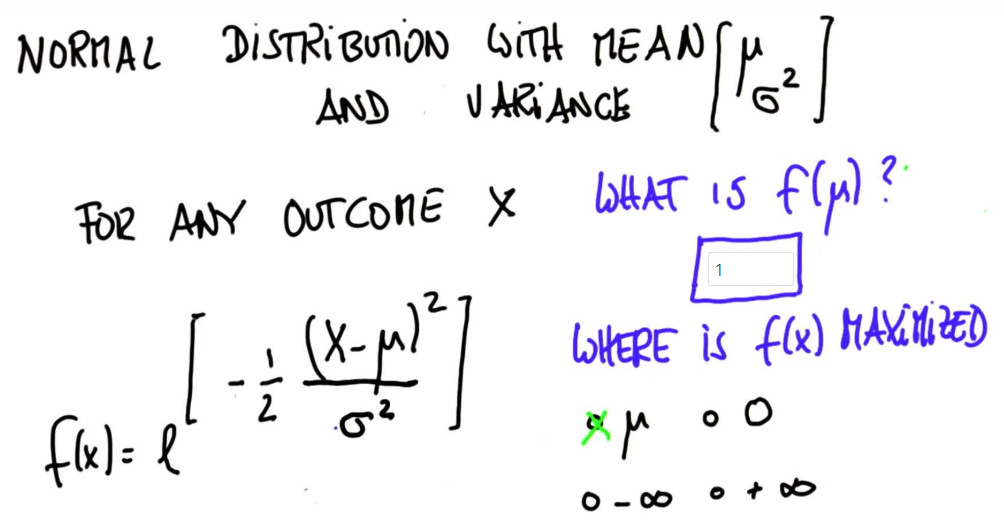 NORMAL DISTRIBUTION WITH MEAN [μ
AND VARIANCE σ²]
FOR ANY OUTCOME X
f(x) = e^[-1/2 (x-μ)²/σ²]
WHAT IS f(μ)?
1
WHERE IS f(x) MAXIMIZED
x μ o 0
o -∞ o +∞